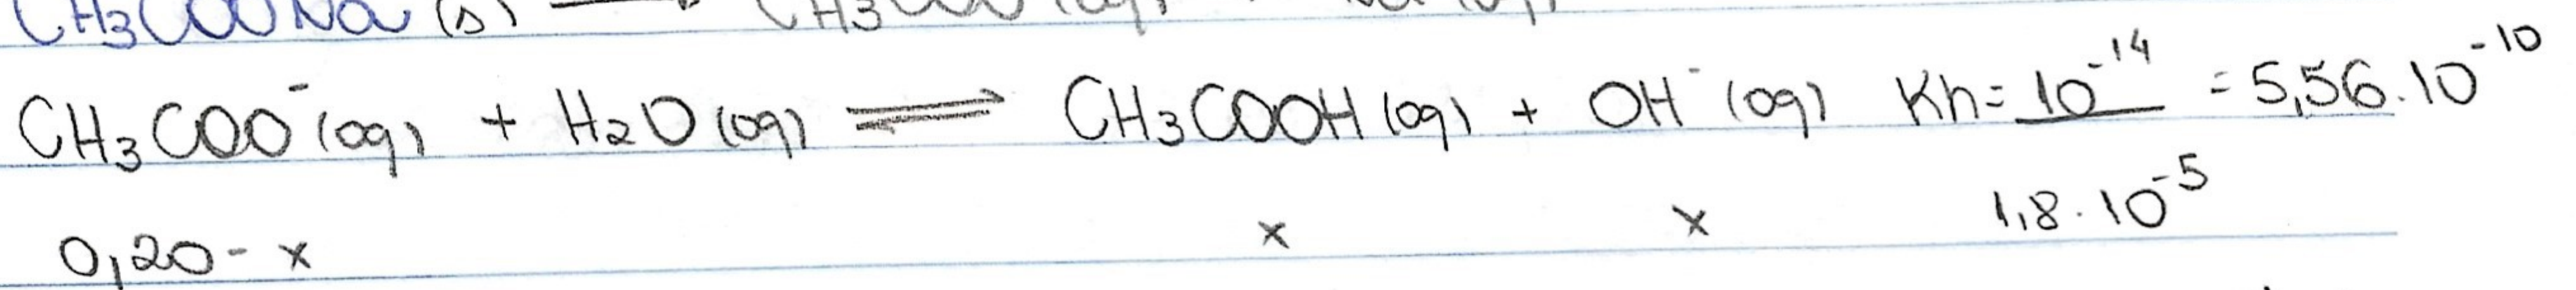 CH₃COONa (s) → CH₃COO⁻ (aq)
CH₃COO⁻(aq) + H₂O (aq) ⇌ CH₃COOH (aq) + OH⁻ (aq) Kh = 10⁻¹⁴ / 1,8 · 10⁻⁵ = 5,56 · 10⁻¹⁰
0,20 - x x x